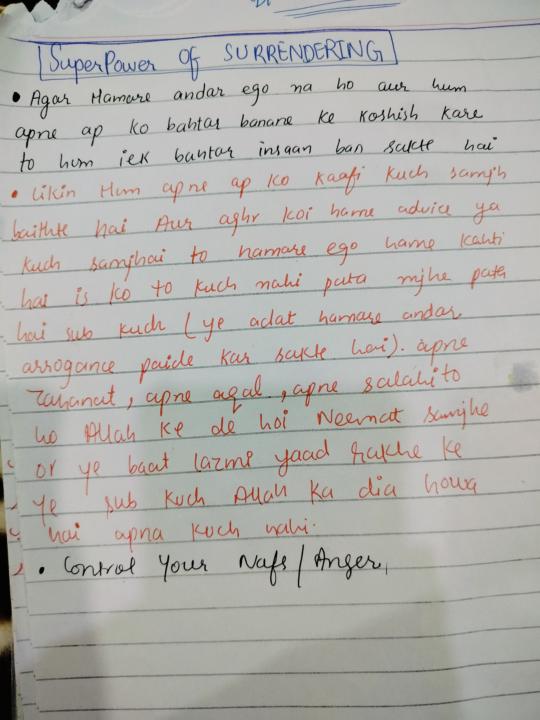 SuperPower OF SURRENDERING
• Agar Hamare andar ego na ho aur hum
apne ap ko bahtar banane ke koshish kare
to hum iek bahtar insaan ban sakte hai
• Likin Hum apne ap ko kaafi kuch samjh
baithte hai Aur aghr koi hame advice ya
kuch samjhai to hamare ego hame kahti
hai is ko to kuch nahi pata mjhe pata
hai sub kuch (ye adat hamare andar
arrogance paide kar sakte hai). apne
Zahanat, apne aqal, apne salahito
ko Allah ke de hoi Neemat samjhe
or ye baat lazmi yaad rakhe ke
ye sub kuch Allah ka dia howa
hai apna kuch nahi.
• Control Your Nafs / Anger,